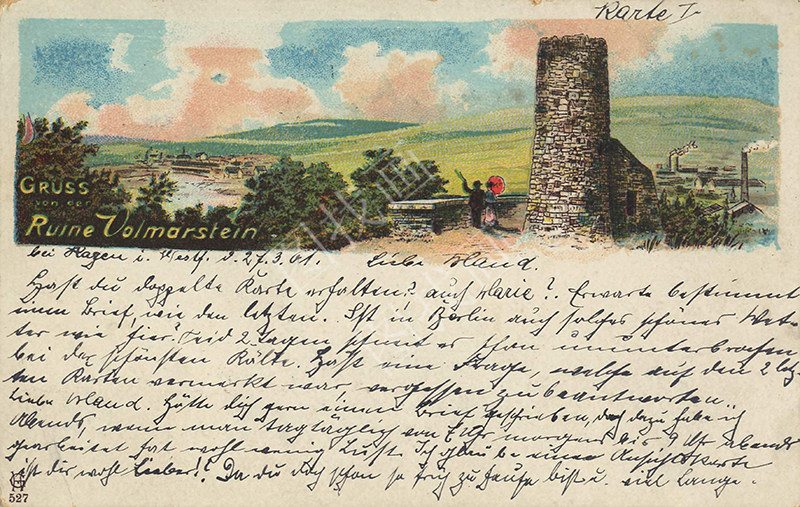 Karte I
GRUSS
von der
Ruine Volmarstein
bei Hagen i. Westf. d. 27.3.01. Liebe
Hast du doppelte Karte erhalten? auch Marie?. Erwarte bestimmt
einen Brief, wie den letzten. Ist in Berlin auch solches schönes Wet-
ter wie hier? Seid 2 Tagen schneit es schon ununterbrochen,
bei der schönsten Kälte. Hast eine Frage, welche auf den 2 letz-
ten Karten vermerkt war vergessen zu beantworten..
Liebe Hätte dich gern einen Brief geschrieben, doch dazu habe ich
Abends, wenn man tagtäglich von 7 Uhr morgens bis 9 Uhr abends
gearbeitet hat wohl wenig Lust. Ich glaube eine Ansichtskarte
ist dir wohl Lieber!? Da du dich schon so früh zu Hause bist u. viel Lange-
527